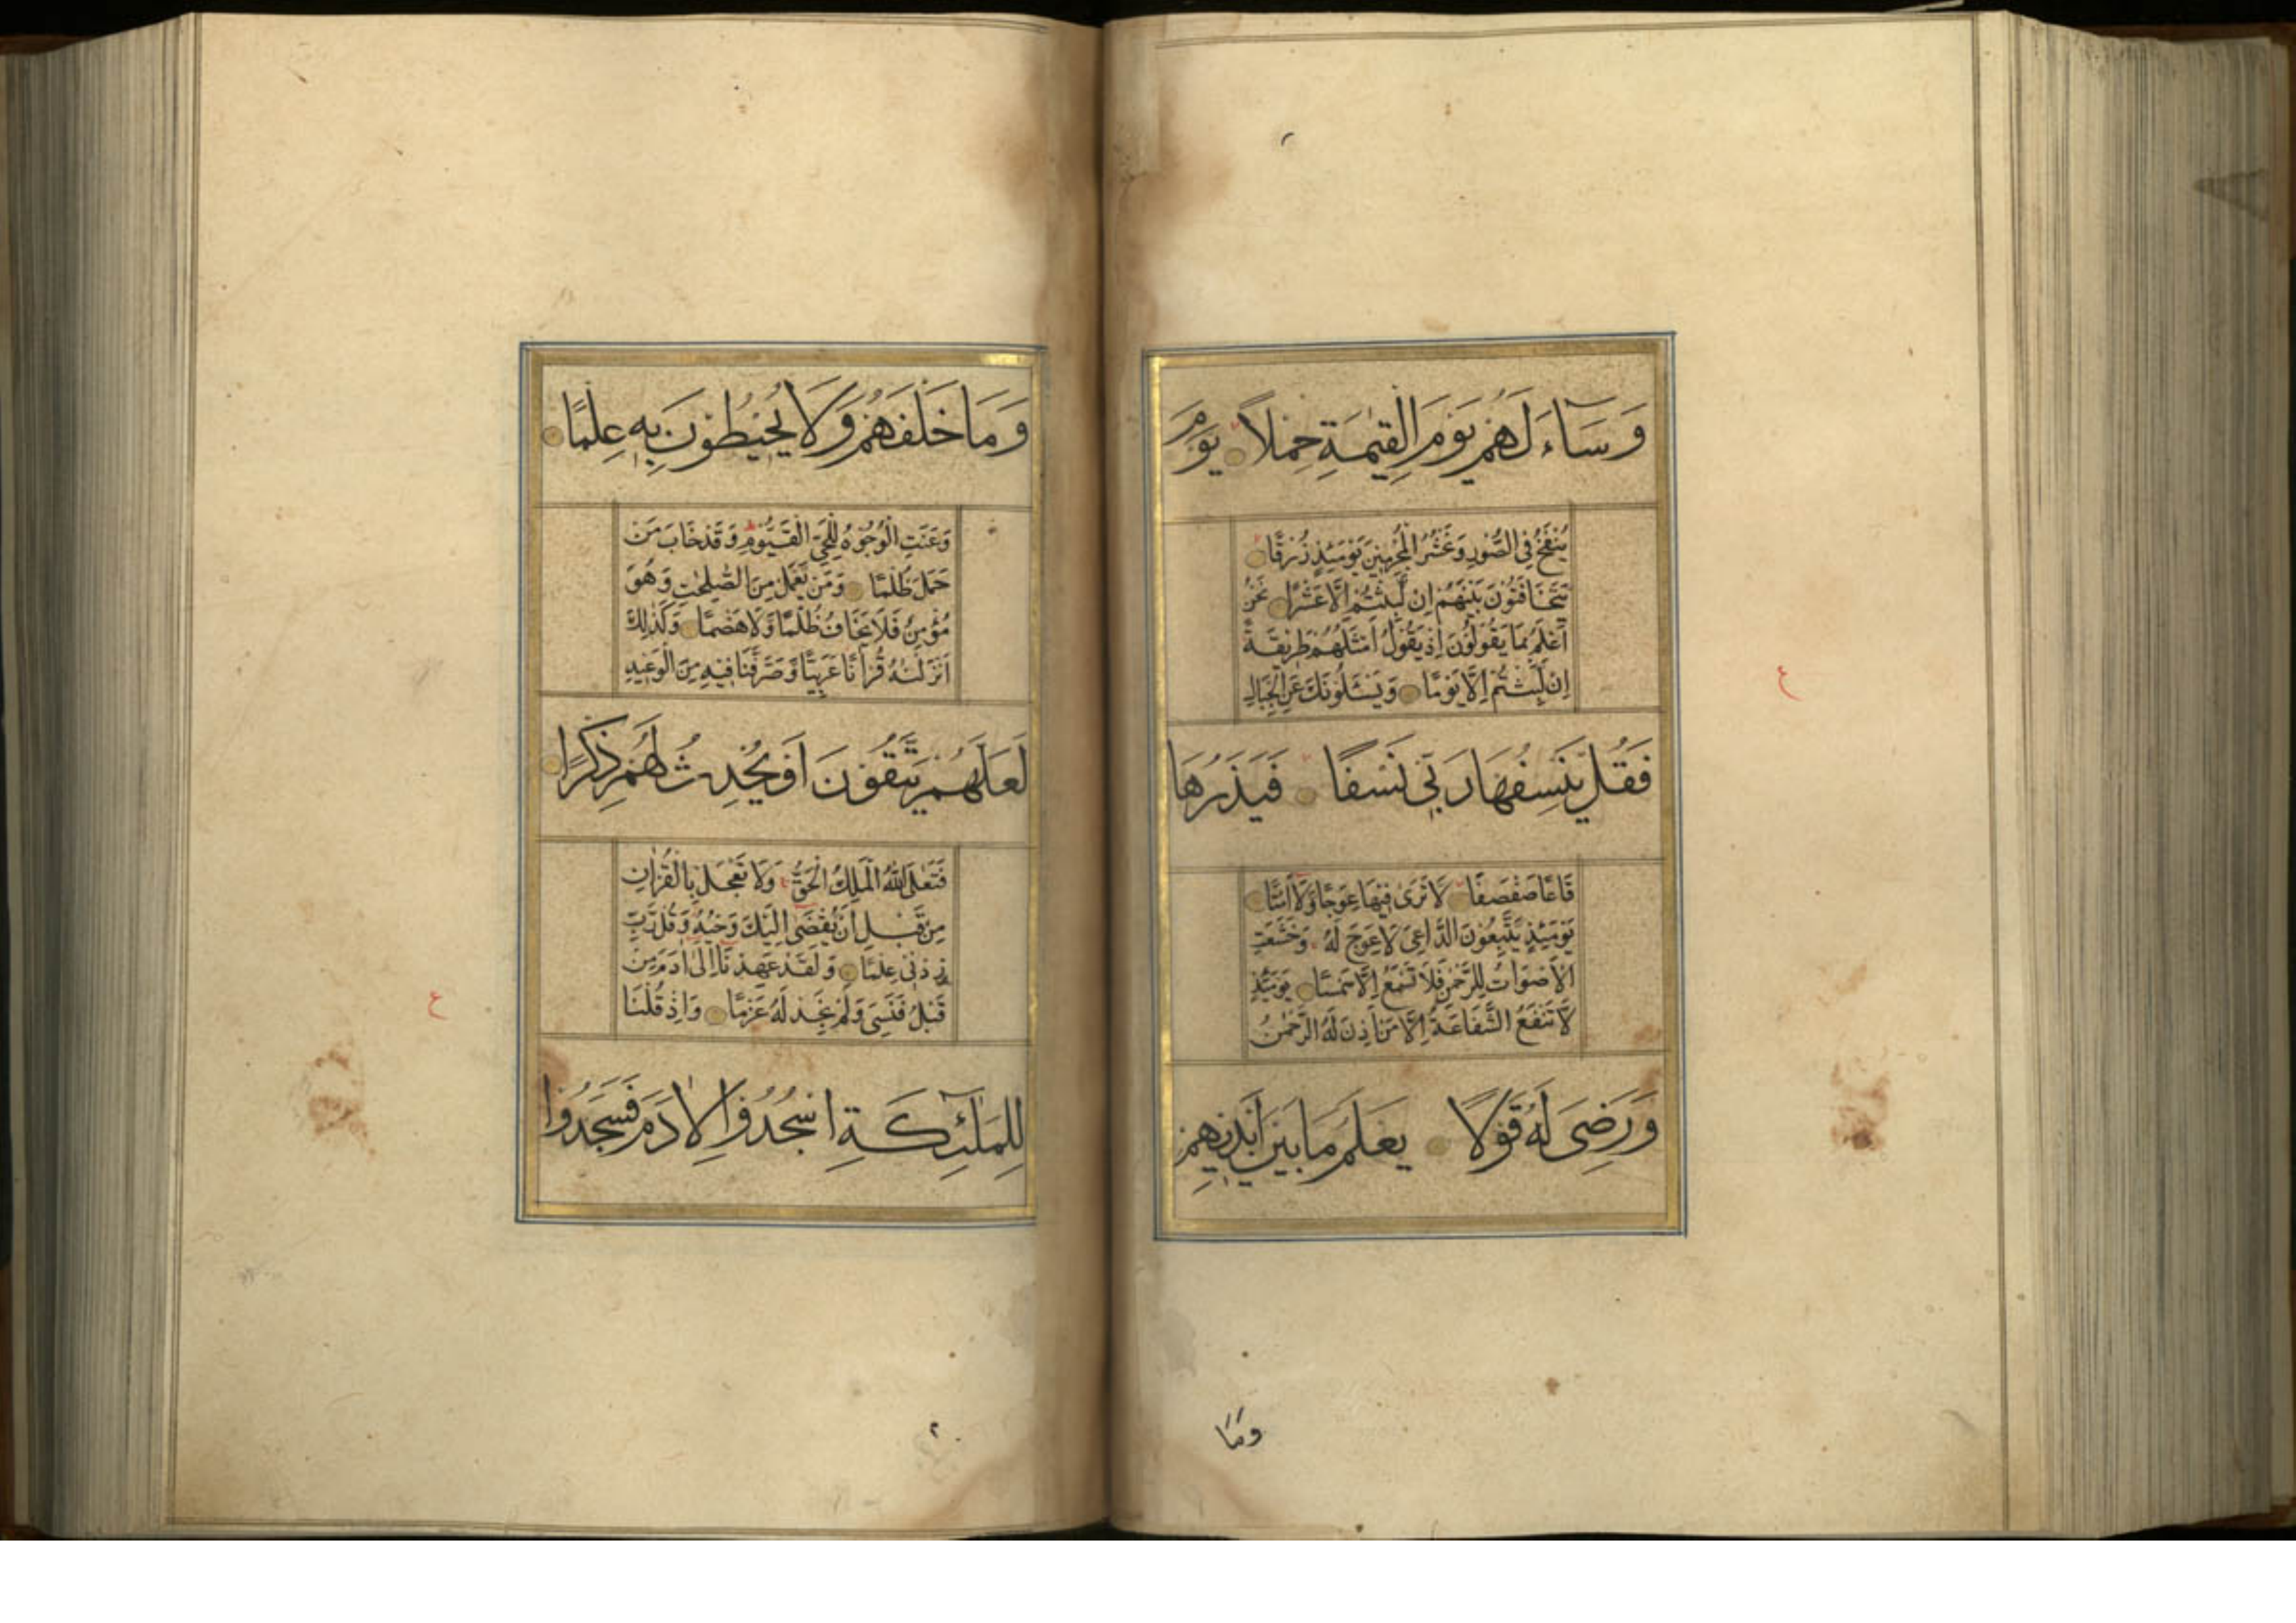 وَسَآءَ لَهُمْ يَوْمَ الْقِيٰمَةِ حِمْلًا يَوْمَ
يُنْفَخُ فِي الصُّورِ وَنَحْشُرُ الْمُجْرِمِينَ يَوْمَئِذٍ زُرْقًا
يَتَخَافَتُونَ بَيْنَهُمْ اِنْ لَّبِثْتُمْ اِلَّا عَشْرًا نَحْنُ
اَعْلَمُ بِمَا يَقُولُونَ اِذْ يَقُولُ اَمْثَلُهُمْ طَرِيقَةً
اِنْ لَّبِثْتُمْ اِلَّا يَوْمًا وَيَسْـَٔلُونَكَ عَنِ الْجِبَالِ
فَقُلْ يَنْسِفُهَا رَبِّي نَسْفًا فَيَذَرُهَا
قَاعًا صَفْصَفًا لَا تَرٰى فِيهَا عِوَجًا وَّلَا اَمْتًا
يَوْمَئِذٍ يَّتَّبِعُونَ الدَّاعِيَ لَا عِوَجَ لَهُ وَخَشَعَتِ
الْاَصْوَاتُ لِلرَّحْمٰنِ فَلَا تَسْمَعُ اِلَّا هَمْسًا يَوْمَئِذٍ
لَّا تَنْفَعُ الشَّفَاعَةُ اِلَّا مَنْ اَذِنَ لَهُ الرَّحْمٰنُ
وَرَضِيَ لَهُ قَوْلًا يَعْلَمُ مَا بَيْنَ اَيْدِيهِمْ
ع
وَمَا
وَمَا خَلْفَهُمْ وَلَا يُحِيطُونَ بِهِ عِلْمًا
وَعَنَتِ الْوُجُوهُ لِلْحَيِّ الْقَيُّومِ ط وَقَدْ خَابَ مَنْ
حَمَلَ ظُلْمًا وَمَنْ يَّعْمَلْ مِنَ الصّٰلِحٰتِ وَهُوَ
مُؤْمِنٌ فَلَا يَخَافُ ظُلْمًا وَّلَا هَضْمًا وَكَذٰلِكَ
اَنْزَلْنٰهُ قُرْاٰنًا عَرَبِيًّا وَّصَرَّفْنَا فِيهِ مِنَ الْوَعِيدِ
لَعَلَّهُمْ يَتَّقُونَ اَوْ يُحْدِثُ لَهُمْ ذِكْرًا
فَتَعٰلَى اللّٰهُ الْمَلِكُ الْحَقُّ وَلَا تَعْجَلْ بِالْقُرْاٰنِ
مِنْ قَبْلِ اَنْ يُّقْضٰى اِلَيْكَ وَحْيُهُ وَقُلْ رَّبِّ
زِدْنِي عِلْمًا وَلَقَدْ عَهِدْنَا اِلٰى اٰدَمَ مِنْ
قَبْلُ فَنَسِيَ وَلَمْ نَجِدْ لَهُ عَزْمًا وَاِذْ قُلْنَا
لِلْمَلٰٓئِكَةِ اسْجُدُوا لِاٰدَمَ فَسَجَدُوا
ع
٢